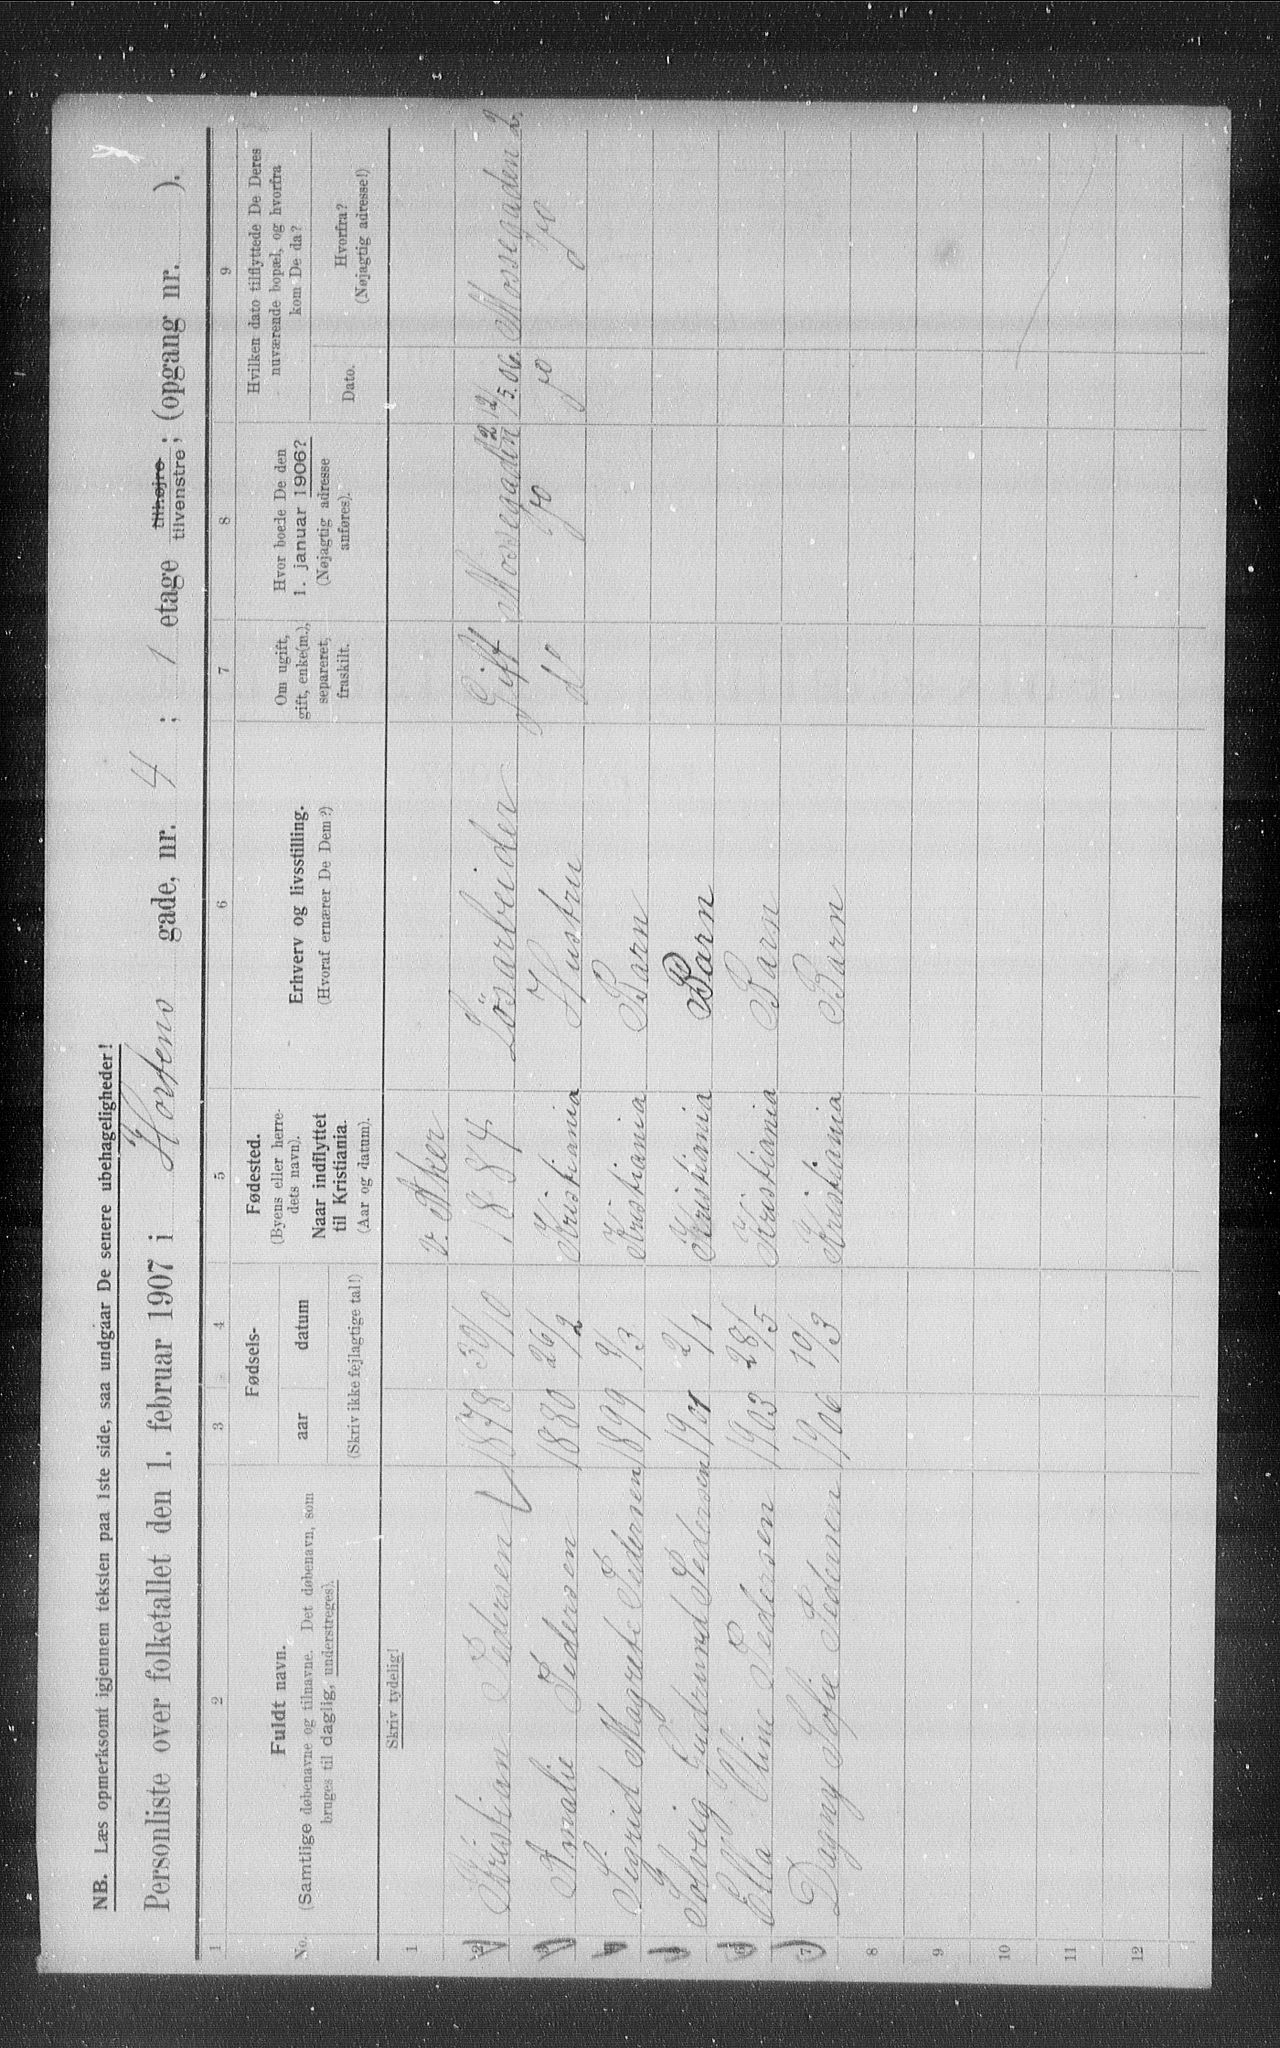 NB. Læs opmerksomt igjennem teksten paa 1ste side, saa undgaar De senere ubehageligheder!
Personliste over folketallet den 1. februar 1907 i Hortens gade, nr. 4 ; 1 etage tilhøjre tilvenstre; (opgang nr. ).
1 2 3 4 5 6 7 8 9
No.
Fuldt navn.
(Samtlige døbenavne og tilnavne. Det døbenavn, som
bruges til daglig, understreges).
Fødsels-
aar datum
(Skriv ikke fejlagtige tal!)
Fødested.
(Byens eller herre-
dets navn).
Naar indflyttet
til Kristiania.
(Aar og datum).
Erhverv og livsstilling.
(Hvoraf ernærer De Dem?)
Om ugift,
gift, enke(m.),
separeret,
fraskilt.
Hvor boede De den
1. januar 1906?
(Nøjagtig adresse
anføres).
Hvilken dato tilflyttede De Deres
nuværende bopæl, og hvorfra
kom De da?
Dato.
Hvorfra?
(Nøjagtig adresse!)
Skriv tydelig!
1 v. Aker
2 Kristian Pedersen 1878 30/10 1884 Lösarbeider Gift Mossegaden 2 12/5.06. Mossegaden 2.
3 Amalie Pedersen 1880 26/2 Kristiania Hustru do do do do
4 Sigrid Magrete Pedersen 1899 9/3 Kristiania Barn
5 Solveig Gudrund Pedersen 1901 2/1 Kristiania Barn
6 Ella Oline Pedersen 1903 28/5 Kristiania Barn
7 Dagny Sofie Pedersen 1906 10/3 Kristiania Barn
8
9
10
11
12